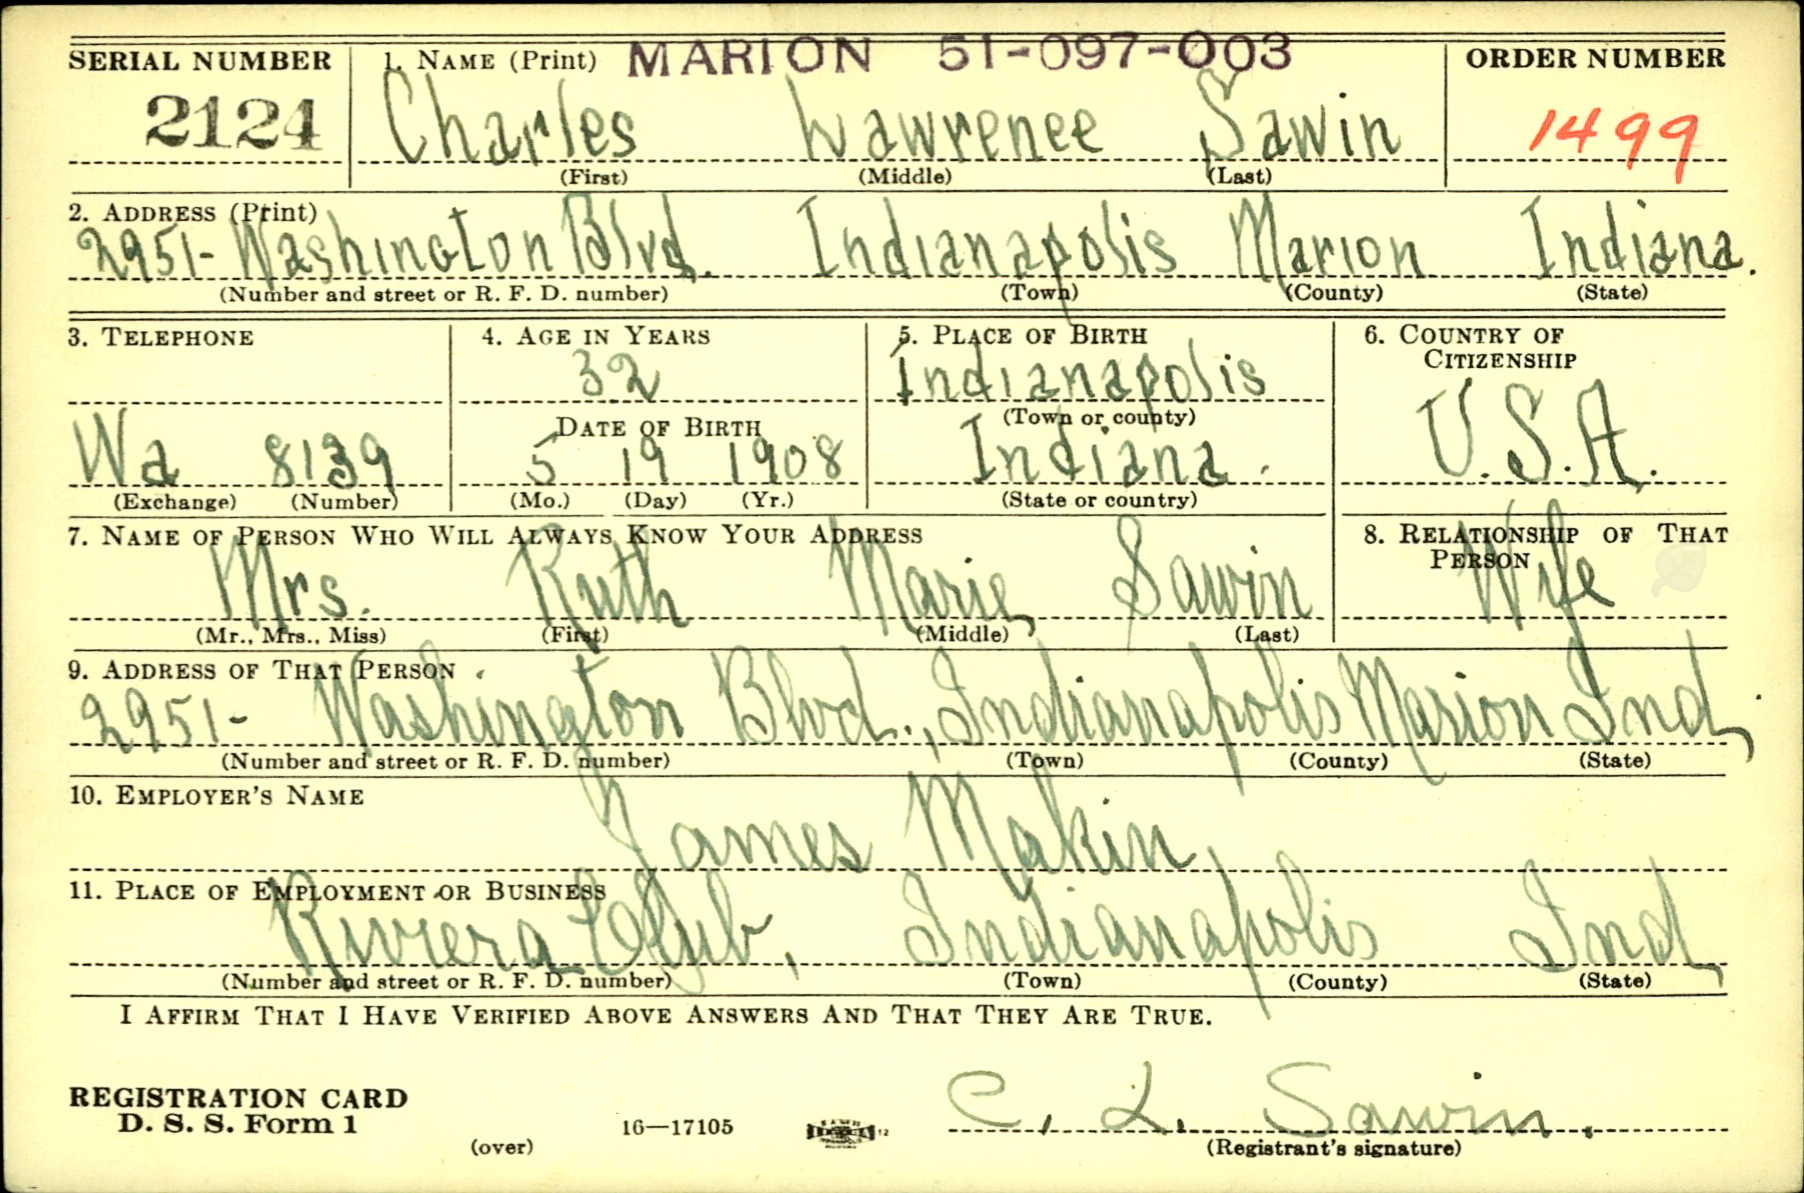 MARION 51-097-003
SERIAL NUMBER 1. NAME (Print) ORDER NUMBER
2124 Charles Lawrence Sawin 1499
(First) (Middle) (Last)
2. ADDRESS (Print)
2951- Washington Blvd. Indianapolis Marion Indiana.
(Number and street or R. F. D. number) (Town) (County) (State)
3. TELEPHONE 4. AGE IN YEARS 5. PLACE OF BIRTH 6. COUNTRY OF CITIZENSHIP
32 Indianapolis U.S.A.
DATE OF BIRTH (Town or county)
Wa 8139 5 19 1908 Indiana.
(Exchange) (Number) (Mo.) (Day) (Yr.) (State or country)
7. NAME OF PERSON WHO WILL ALWAYS KNOW YOUR ADDRESS 8. RELATIONSHIP OF THAT PERSON
Mrs. Ruth Marie Sawin Wife
(Mr., Mrs., Miss) (First) (Middle) (Last)
9. ADDRESS OF THAT PERSON
2951- Washington Blvd., Indianapolis Marion Ind,
(Number and street or R. F. D. number) (Town) (County) (State)
10. EMPLOYER'S NAME
James Makin
11. PLACE OF EMPLOYMENT OR BUSINESS
Riviera Club, Indianapolis Ind,
(Number and street or R. F. D. number) (Town) (County) (State)
I AFFIRM THAT I HAVE VERIFIED ABOVE ANSWERS AND THAT THEY ARE TRUE.
REGISTRATION CARD
D. S. S. Form 1
(over) 16—17105 C. L. Sawin.
(Registrant's signature)